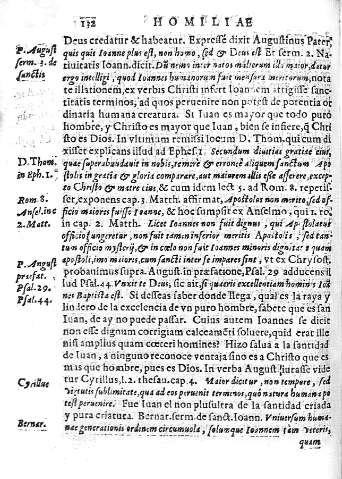 132 HOMILIAE
Deus credatur & habeatur. Expressè dixit Augustinus Pater,
P. August. serm. 3. de sanctis
quis quis Ioanne plus est, non homo, sed & Deus est Et serm. 2. Na-
tiuitatis Ioann. dicit. Dũ nemo inter natos mulierum illi maior, datur
ergo intelligi, quod Ioannes humanorum fuit mensura meritorum, nota
te illationem, ex verbis Christi infert Ioannem attigisse sancti-
tatis terminos, ad quos peruenire non potest de potentia or
dinaria humana creatura. Si Iuan es mayor que todo puro
hombre, y Christo es mayor que Iuan, bien se infiere, q̃ Christo
es Dios. In vltimum remisi locum D. Thom. qui cum di
D. Thom. in Eph. 1.
xisset explicans illud ad Ephes. 1. Secundum diuitias gratiae eius,
quae superabundauit in nobis, temerè & erroneè aliquem sanctum Apo
stolis in gratia & gloria comparare, aut maiorem illis esse asserere, excep-
to Christo & matre eius, & cum idem lect. 5. ad Rom. 8. repetis-
Rom. 8.
set, exponens cap. 3. Matth. affirmat, Apostolos non merito, sed of-
Ansel. in c 2. Matt.
ficio maiores fuisse Ioanne, & hoc sumpsit ex Anselmo, qui 1. to.
in cap. 2. Matth. Licet Ioannes non fuit dignus, qui Apostolatus
officio fungeretur, non tamen inferior meritis Apostolis, sed tan
tum officio mysterij, & in coelo non fuit Ioannes minoris dignitatis quam
apostoli, imo maiores, cum sancti inter se impares sint, vt ex Chrysost.
P. August. praefat. Psal. 29. Psal. 44.
probauimus supra. August. in praefatione, Psal. 29 adducens il
lud Psal. 44 Vnxit te Deus, sic ait, si quaeris excellentiam hominis Io-
nes Baptista est. Si desseas saber donde llega, qual es la raya y
lindero de la excelencia de vn puro hombre, sabete que es san
Iuan, de ay no puede passar. Cuius autem Ioannes se dicit
non esse dignum corrigiam calceamēti soluere, quid erat ille
nisi amplius quam coeteri homines? Hizo salua a la santidad
de Iuan, a ninguno reconoce ventaja sino es a Christo que es
mas que hombre, pues es Dios. In verba August. jurasse vide
Cyrillus
tur Cyrillus, l. 2. thesau. cap. 4. Maior dicitur, non tempore, sed
virtutis sublimitate, qua ad eos peruenit terminos, quò natura humana po
test peruenire. Fue Iuan el plusultra de la santidad criada
Bernar.
y pura criatura. Bernar. serm. de sanct. Ioann. Vniuersum huma-
nae generationis ordinem circumuola, solumque Ioannem tam veteris,
quam